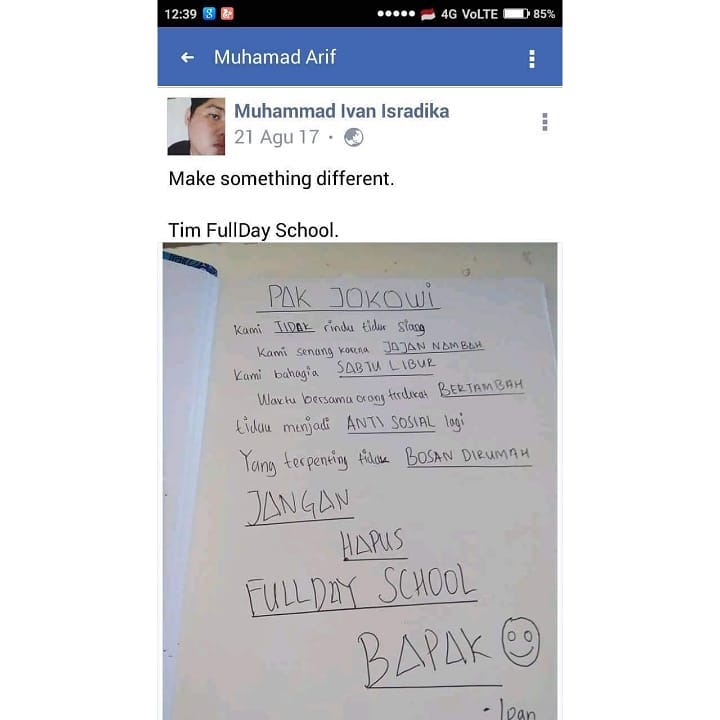 12:39 4G VoLTE 85%
Muhamad Arif
Muhammad Ivan Isradika
21 Agu 17
Make something different.
Tim FullDay School.
PAK JOKOWI
Kami TIDAK rindu tidur siang
Kami senang karena JAJAN NAMBAH
Kami bahagia SABTU LIBUR
Waktu bersama orang terdekat BERTAMBAH
tidak menjadi ANTI SOSIAL lagi
Yang terpenting tidak BOSAN DIRUMAH
JANGAN
HAPUS
FULLDAY SCHOOL
BAPAK
- Ivan